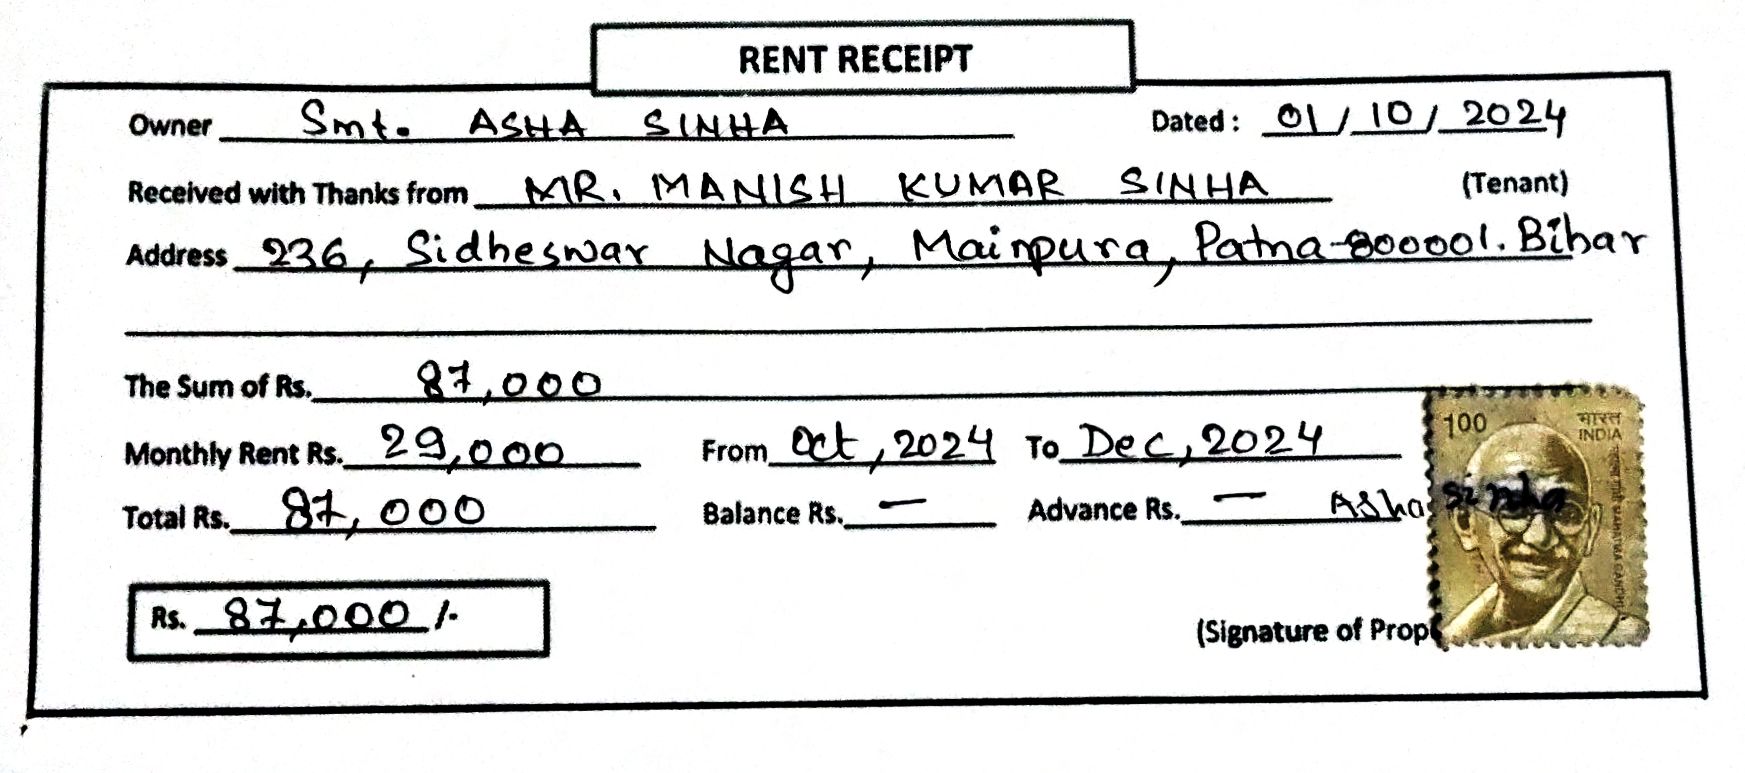 RENT RECEIPT
Owner Smt. ASHA SINHA Dated : 01/10/2024
Received with Thanks from MR. MANISH KUMAR SINHA (Tenant)
Address 236, Sidheswar Nagar, Mainpura, Patna-800001. Bihar
The Sum of Rs. 87,000
Monthly Rent Rs. 29,000 From Oct, 2024 To Dec, 2024
Total Rs. 87,000 Balance Rs. — Advance Rs. — Asha Sinha
100 भारत
INDIA
MAHATMA GANDHI
Rs. 87,000/-
(Signature of Prop